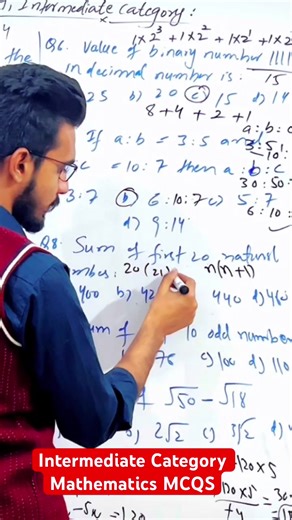 Intermediate Category:
1×2³+1×2²+1×2¹+1×2
Q6. Value of binary number 1111
in decimal number is: 15
25 b) 20 c) 15 d) 14
8+4+2+1
a:b:c
If a:b = 3:5 and
3:5
:10:
:c = 10:7 then a:b:c
30:50:
3:7 b) 6:10:7 c) 5:7
6:10:
d) 9:14
Q8: Sum of first 20 natural
mber: 20(21) n(n+1)
400 b) 42 440 d) 460
um of 10 odd number
76 c) 100 d) 110
of √50 - √18
b) 2√2 c) 3√2 d)
120×5
-5x = 120
Intermediate Category
Mathematics MCQS